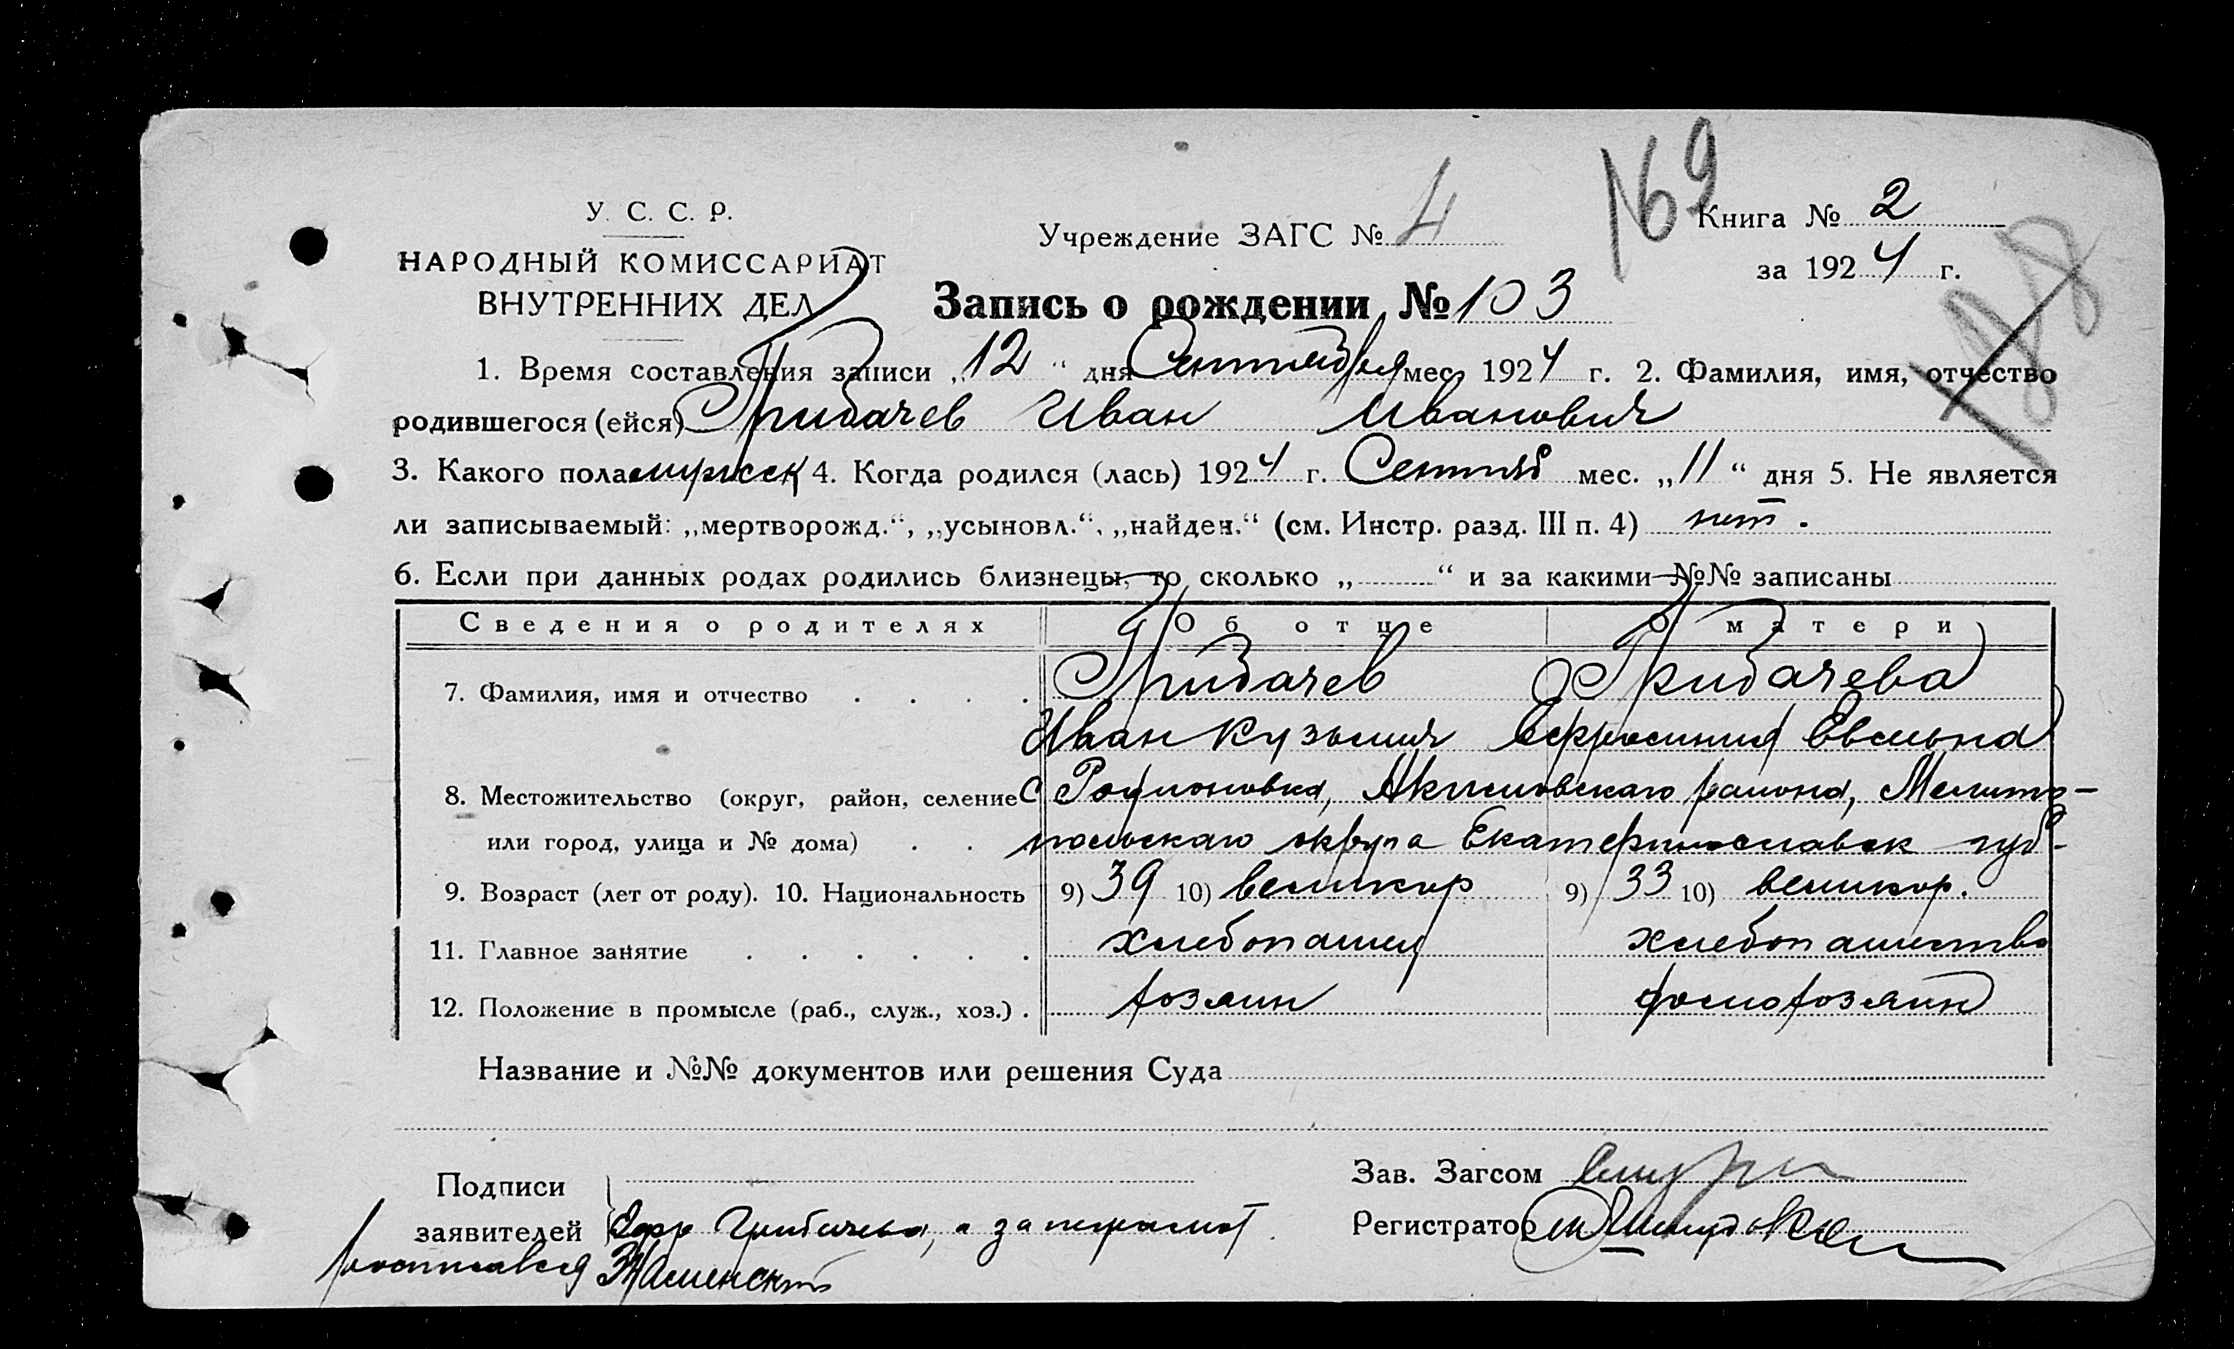 № 9
У. С. С. Р.
Учреждение ЗАГС № 4
Книга № 2
НАРОДНЫЙ КОМИССАРИАТ
за 1924 г.
ВНУТРЕННИХ ДЕЛ
Запись о рождении № 103
188
1. Время составления записи „12“ дня Сентября мес. 1924 г. 2. Фамилия, имя, отчество
родившегося (ейся) Грибачев Иван Иванович
3. Какого пола мужск 4. Когда родился (лась) 1924 г. Сентяб мес. „11“ дня 5. Не является
ли записываемый: „мертворожд.“, „усыновл.“, „найден.“ (см. Инстр. разд. III п. 4) нет.
6. Если при данных родах родились близнецы, то сколько „ “ и за какими №№ записаны
Сведения о родителях Об отце О матери
7. Фамилия, имя и отчество Грибачев Грибачева
Иван Кузьмич Ефросиния
8. Местожительство (округ, район, селение с Родионовка, Акимовскаго района, Мелито-
или город, улица и № дома) польскаго округа Екатеринославск губ.
9. Возраст (лет от роду). 10. Национальность 9) 39 10) великор 9) 33 10) великор.
11. Главное занятие хлебопашец хлебопашество
12. Положение в промысле (раб., служ., хоз.) хозяин домохозяин
Название и №№ документов или решения Суда
Подписи
Зав. Загсом
заявителей Ефр Грибачева, а за неграмот
Регистратор
росписався Каменский